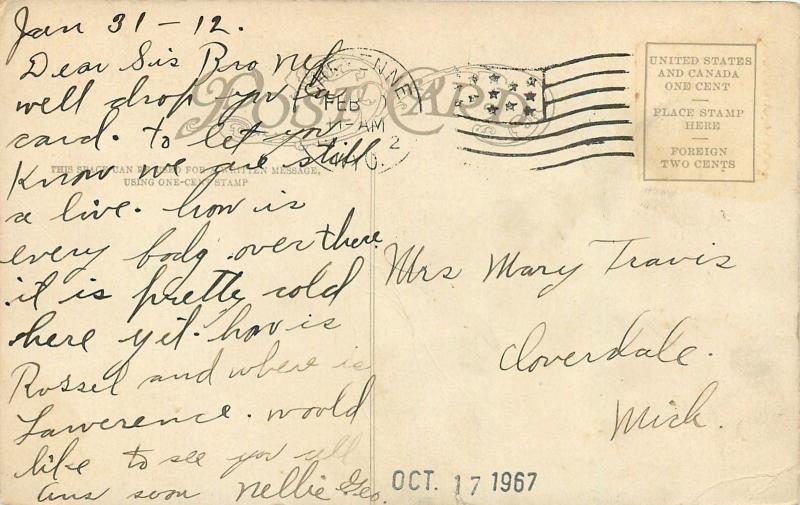 Jan 31-12.
Dear Sis Bro Nef
well drop you a
card. to let you
Know we are still
a live. how is
every body over there
it is pretty cold
here yet. how is
Russel and where is
Lawerence. would
like to see you all
ans soon Nellie Geo.
POST CARD
THIS SPACE CAN BE USED FOR WRITTEN MESSAGE,
USING ONE-CENT STAMP
FEB
AM
2
UNITED STATES
AND CANADA
ONE CENT
PLACE STAMP
HERE
FOREIGN
TWO CENTS
Mrs Mary Travis
Cloverdale.
Mich.
OCT. 17 1967